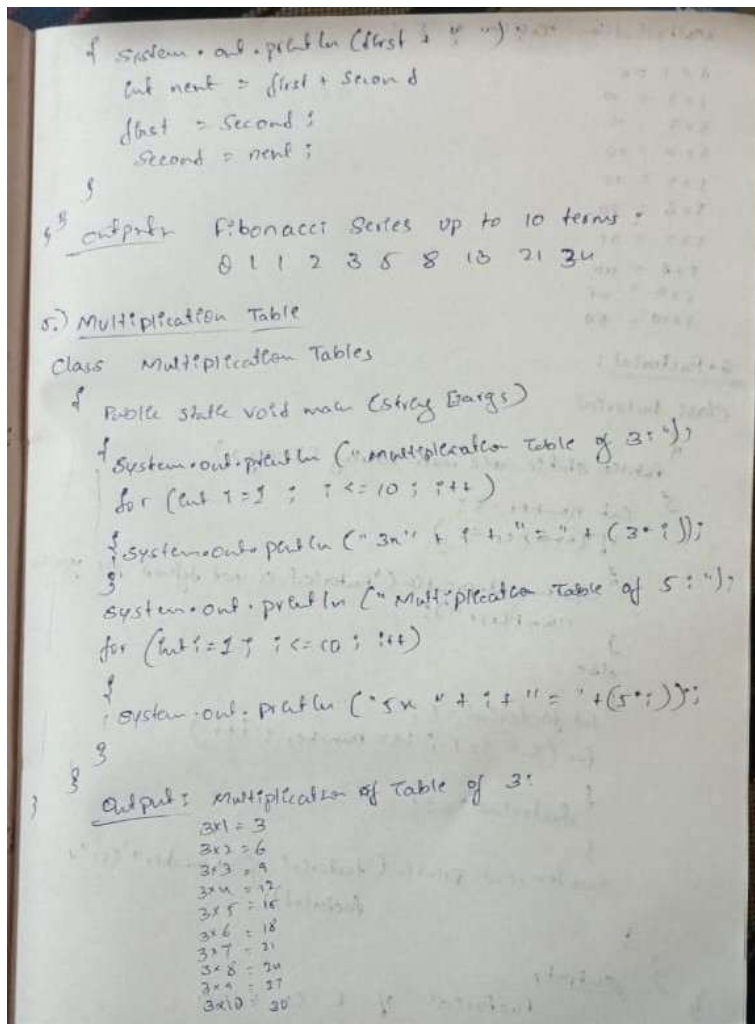 { System.out.println (first + " ");
int next = first + second
first = second;
second = next;
}
}}
output Fibonacci Series up to 10 terms:
0 1 1 2 3 5 8 13 21 34
5.) Multiplication Table
Class Multiplication Tables
{
Public static void main (string []args)
{ System.out.println ("Multiplication Table of 3:");
for (int i=1 ; i <= 10 ; i++)
{ System.out.println ("3x" + i + "=" + (3*i));
}
System.out.println ("Multiplication Table of 5:");
for (int i=1 ; i <= 10 ; i++)
{
System.out.println ("5x" + i + "=" + (5*i));
}
}
}
Output: Multiplication of Table of 3:
3x1 = 3
3x2 = 6
3x3 = 9
3x4 = 12
3x5 = 15
3x6 = 18
3x7 = 21
3x8 = 24
3x9 = 27
3x10 = 30